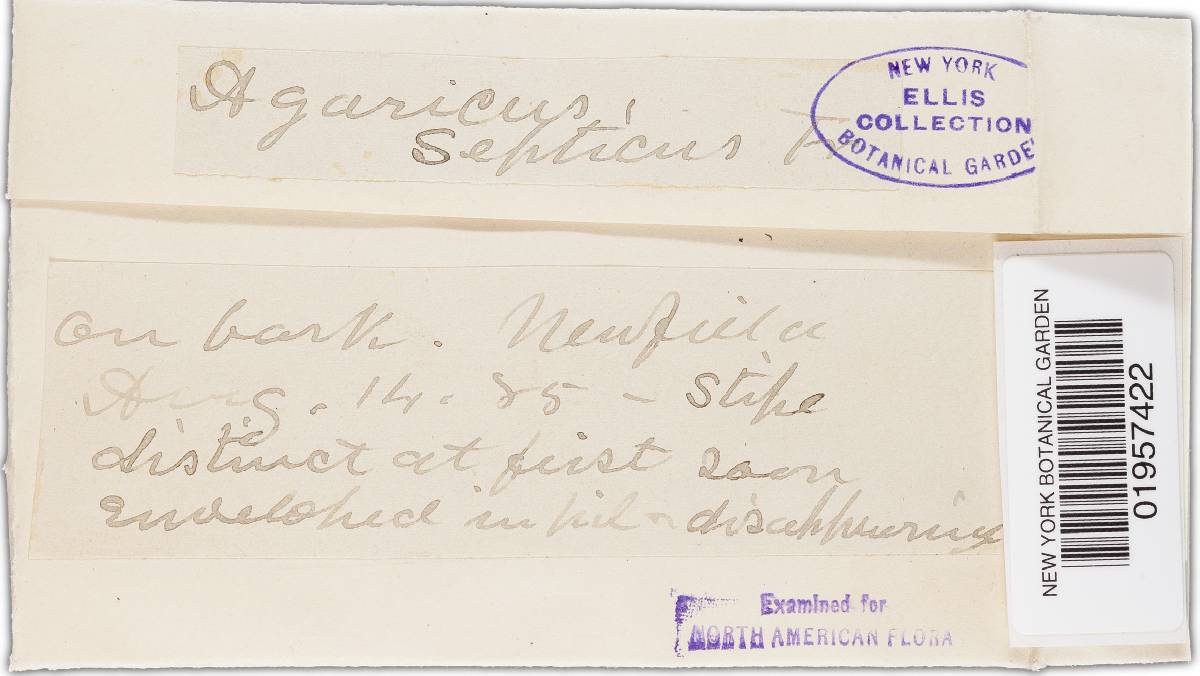 Agaricus
Septicus Fr
NEW YORK
ELLIS
COLLECTION
BOTANICAL GARDE
on bark. Newfield
Aug. 14. 85 - Stipe
distinct at first soon
enveloped in pil & disappearing
NEW YORK BOTANICAL GARDEN
01957422
Examined for
NORTH AMERICAN FLORA